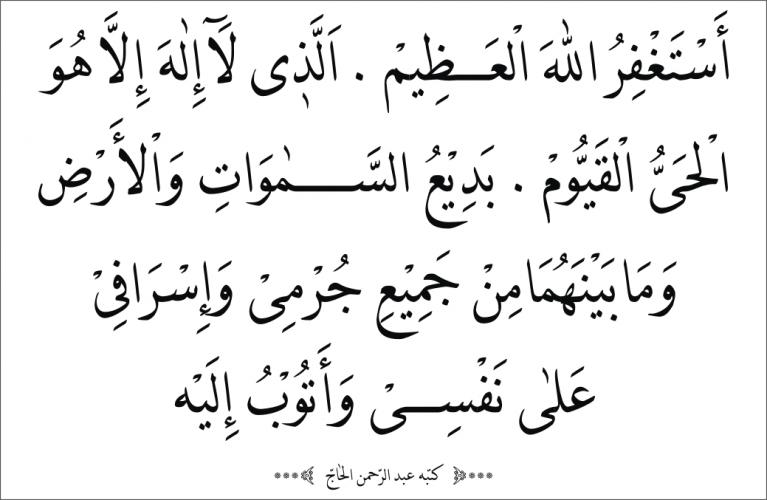 أَسْتَغْفِرُ اللهَ الْعَـــظِيمْ . اَلَّذِى لَآ إِلٰهَ إِلَّا هُوَ
الْحَىُّ الْقَيُّومْ . بَدِيْعُ السَّـــمٰوَاتِ وَالْأَرْضِ
وَمَا بَيْنَهُمَا مِنْ جَمِيْعِ جُرْمِىْ وَإِسْرَافِىْ
عَلٰى نَفْسِـــىْ وَأَتُوْبُ إِلَيْه
كتبه عبد الرّحمن الحاجّ